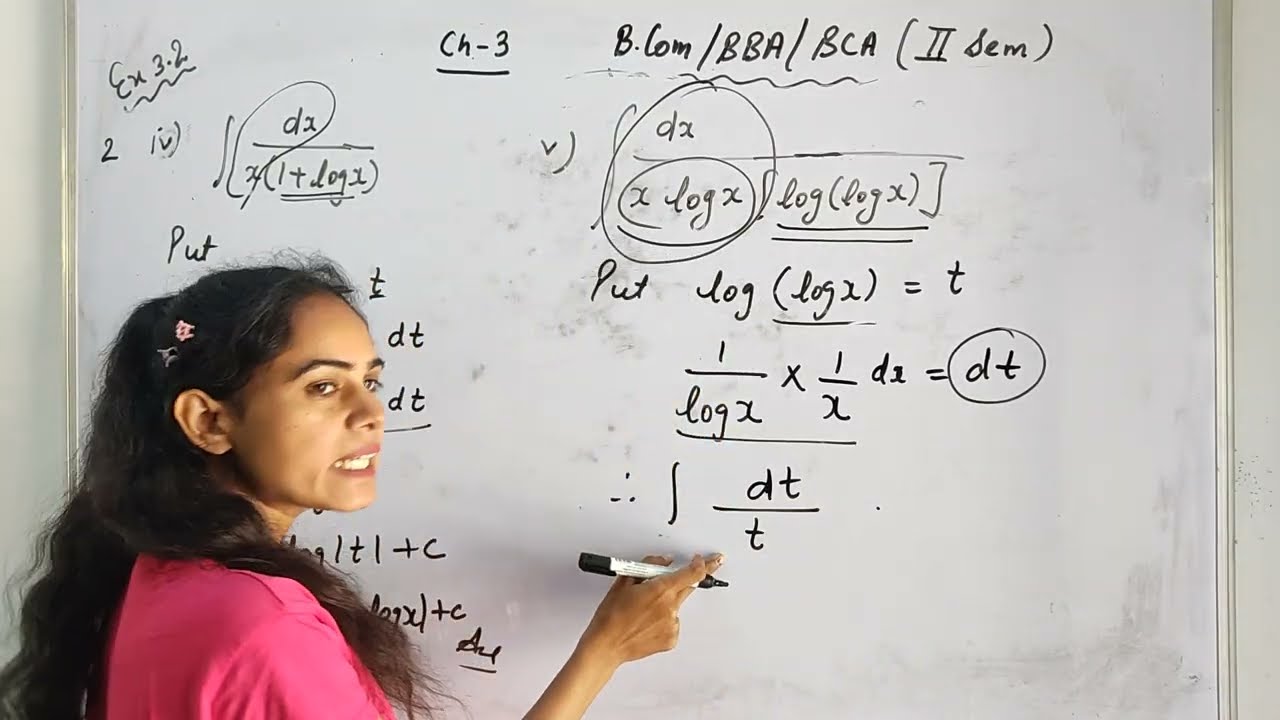 Ch-3 B.Com/BBA/BCA (II Sem)
Ex 3.2
2 iv) ∫ dx / x(1+logx)
Put
t
dt
dt
log|t|+c
logx|+c
Ans
v) ∫ dx / x logx [log(logx)]
Put log (logx) = t
1/logx × 1/x dx = dt
∴ ∫ dt/t